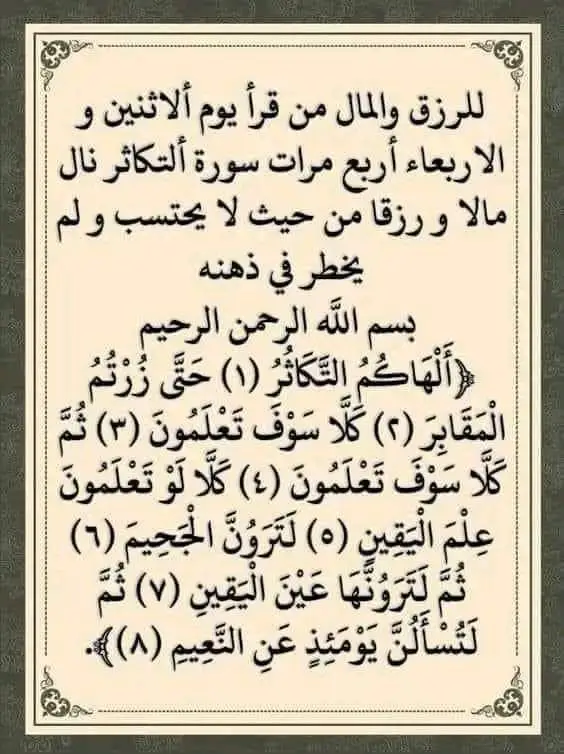 للرزق والمال من قرأ يوم ألاثنين و
الاربعاء أربع مرات سورة ألتكاثر نال
مالا و رزقا من حيث لا يحتسب و لم
يخطر في ذهنه
بسم الله الرحمن الرحيم
﴿أَلْهَاكُمُ التَّكَاثُرُ (١) حَتَّى زُرْتُمُ
الْمَقَابِرَ (٢) كَلَّا سَوْفَ تَعْلَمُونَ (٣) ثُمَّ
كَلَّا سَوْفَ تَعْلَمُونَ (٤) كَلَّا لَوْ تَعْلَمُونَ
عِلْمَ الْيَقِينِ (٥) لَتَرَوُنَّ الْجَحِيمَ (٦)
ثُمَّ لَتَرَوُنَّهَا عَيْنَ الْيَقِينِ (٧) ثُمَّ
لَتُسْأَلُنَّ يَوْمَئِذٍ عَنِ النَّعِيمِ (٨)﴾.